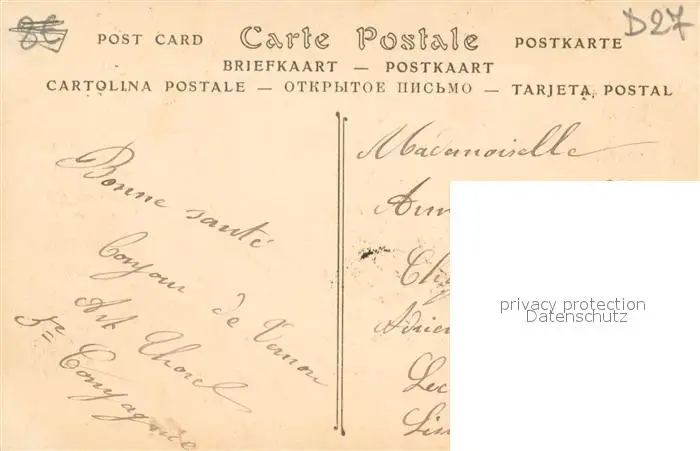 8€ D27
POST CARD Carte Postale POSTKARTE
BRIEFKAART — POSTKAART
CARTOLINA POSTALE — ОТКРЫТОЕ ПИСЬМО — TARJETA POSTAL
Bonne santé
Bonjour de Vernon
Art Thorel
Compagnie
Mademoiselle
privacy protection
Datenschutz